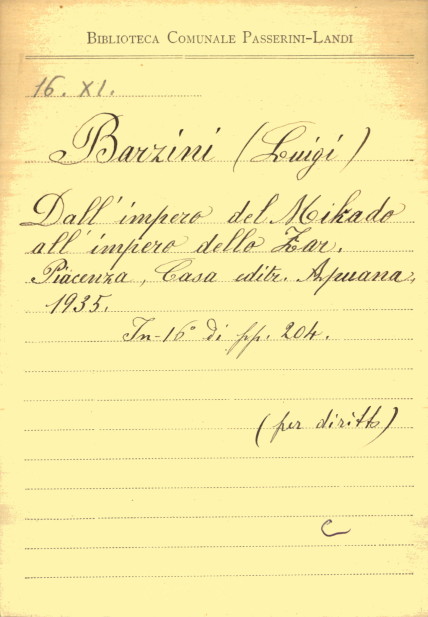 BIBLIOTECA COMUNALE PASSERINI-LANDI
16. XI.
Barzini (Luigi)
Dall'impero del Mikado
all'impero dello Zar.
Piacenza, Casa editr. Apuana,
1935.
In-16° di pp. 204.
(per diritto)
C